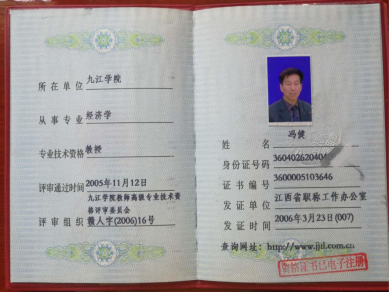 所在单位 九江学院
从事专业 经济学
专业技术资格 教授
评审通过时间 2005年11月12日
九江学院教师高级专业技术资
格评审委员会
评审组织 赣人字(2006)16号
姓名 冯健
身份证号码
证书编号 3600005103646
发证单位 江西省职称工作办公室
发证时间 2006年3月23日(007)
查询网址:http://www.jjtl.com.cn